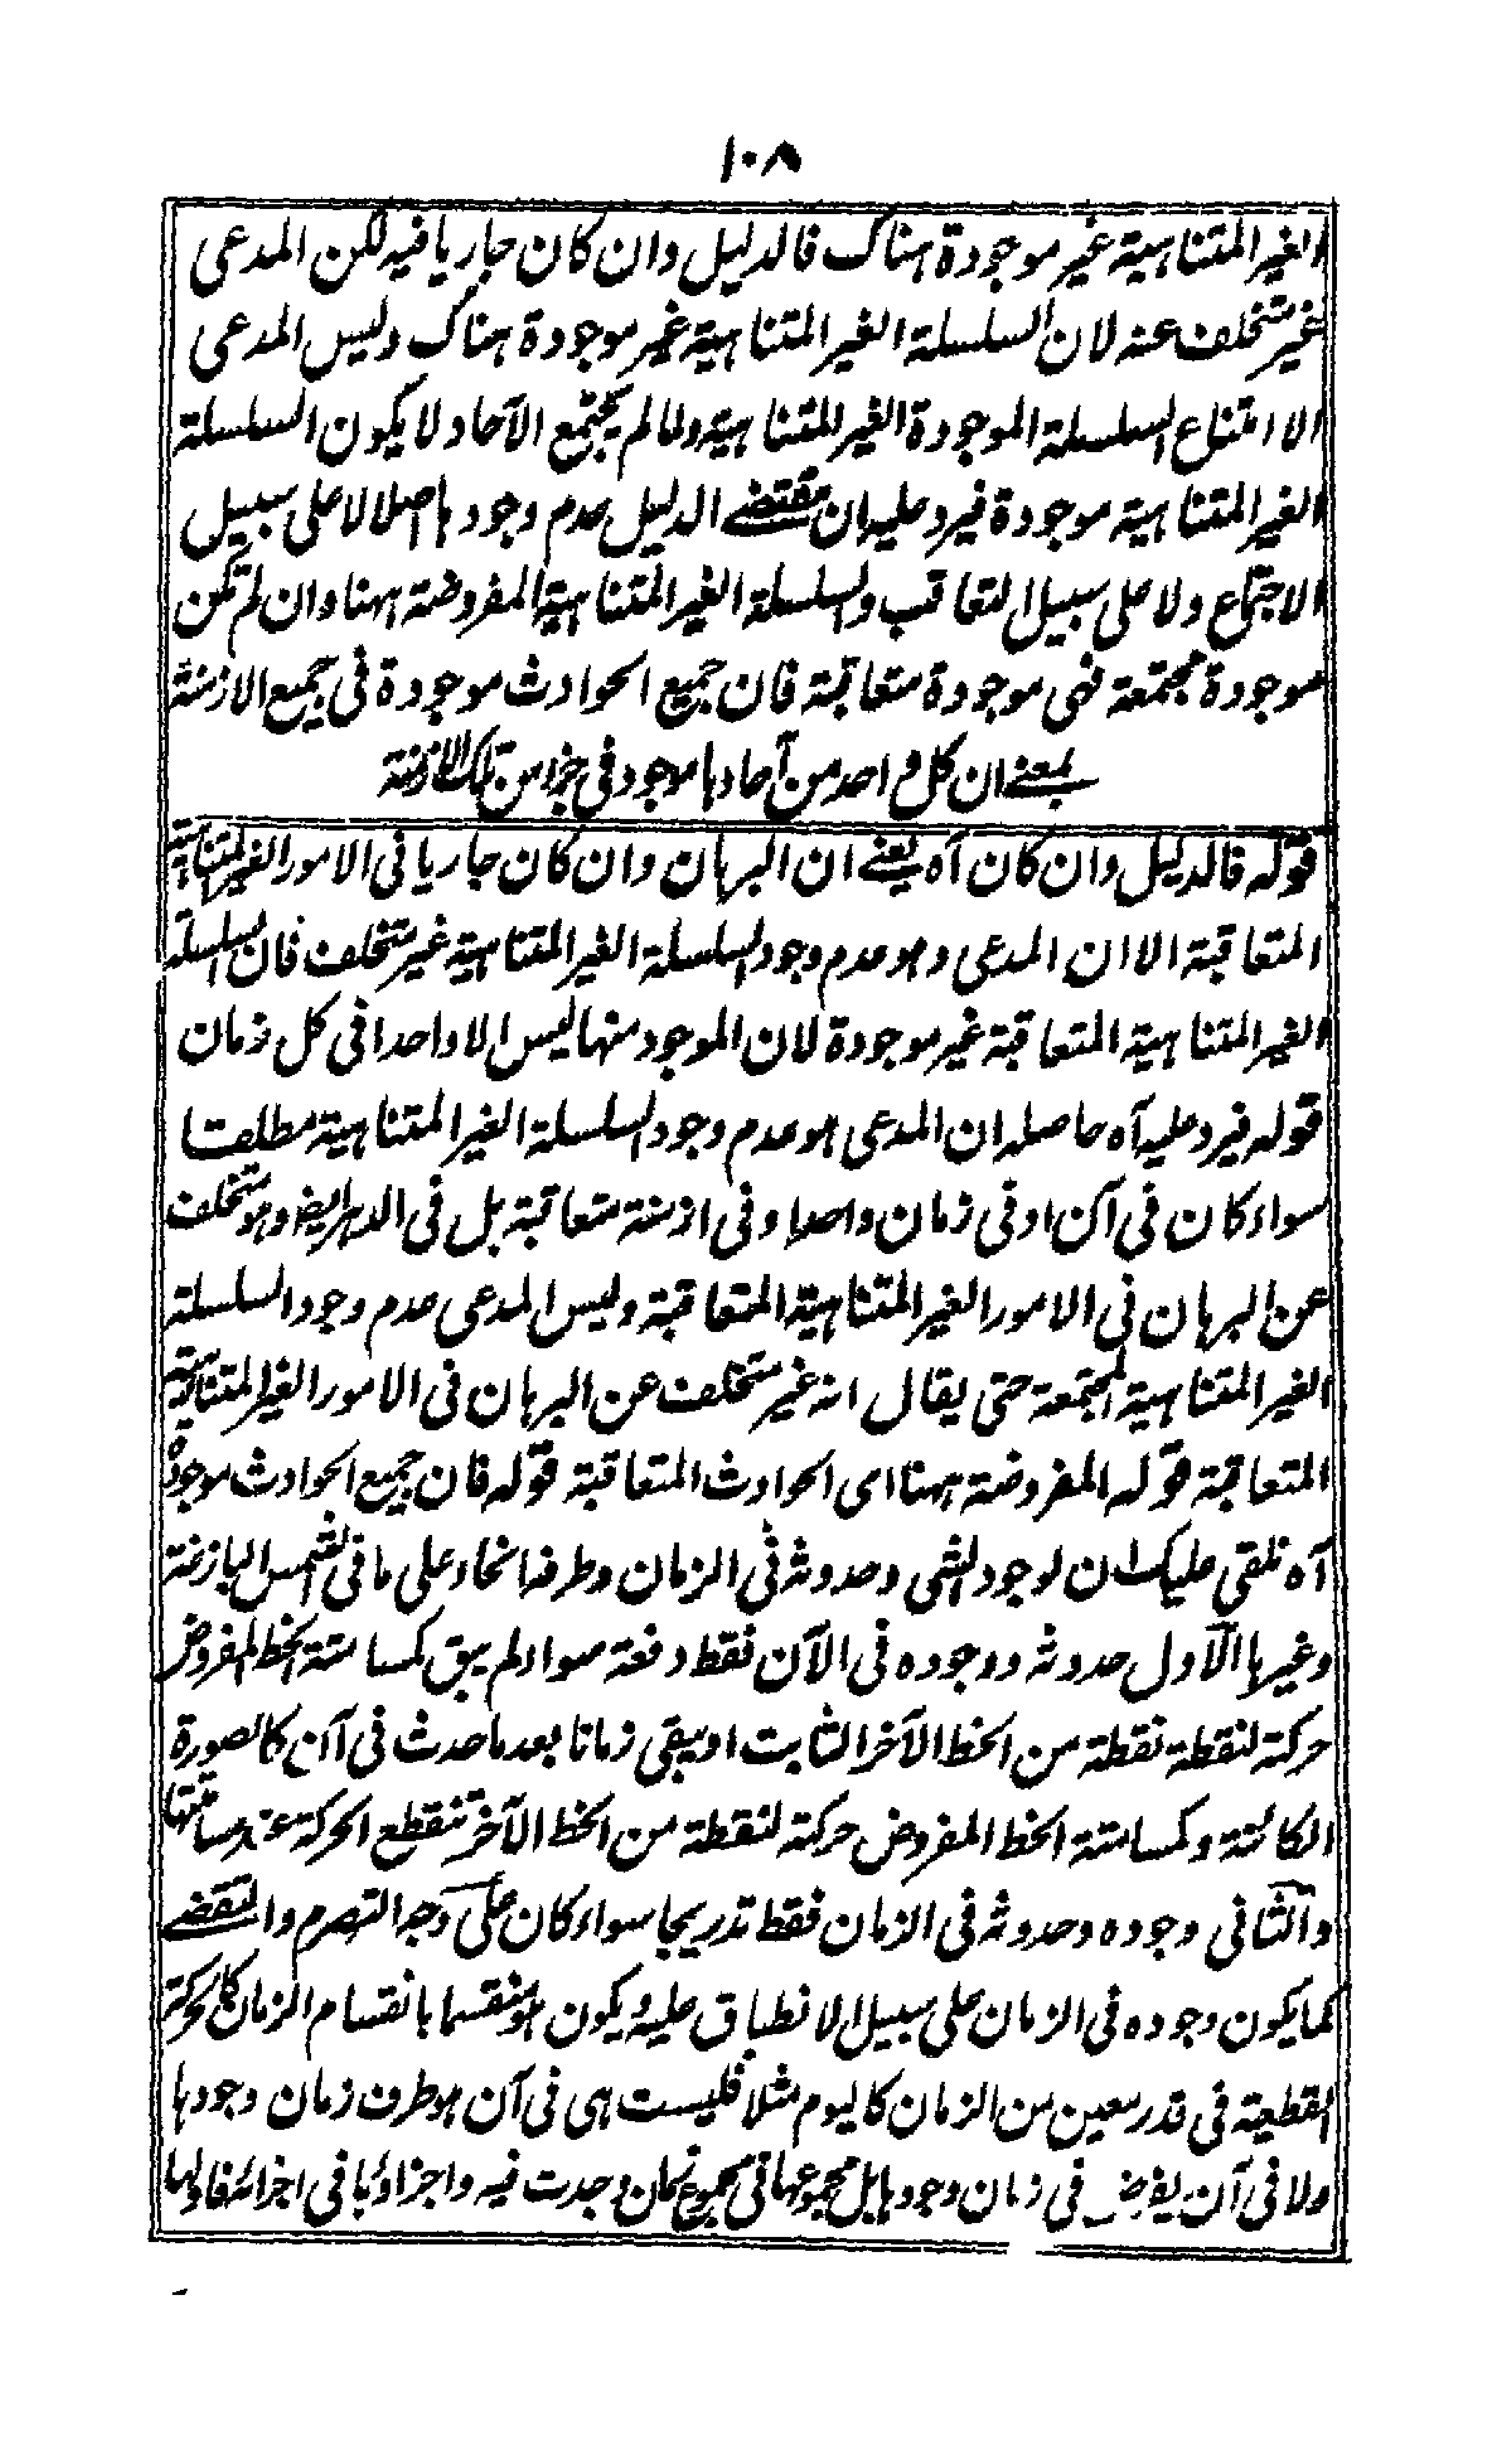 ١٠٨
الغير المتناهية غير موجودة هناك فالدليل وان كان جاريا فيه لكن المدعى
غير متخلف عنه لان السلسلة الغير المتناهية غير موجودة هناك وليس المدعى
الا امتناع السلسلة الموجودة الغير المتناهية ولما لم يجتمع الآحاد لا يكون السلسلة
الغير المتناهية موجودة فيرد عليه ان مقتضى الدليل عدم وجودها اصلا لا على سبيل
الاجتماع ولا على سبيل التعاقب والسلسلة الغير المتناهية المفروضة ههنا وان لم تكن
موجودة مجتمعة فهى موجودة متعاقبة فان جميع الحوادث موجودة فى جميع الازمنة
بمعنى ان كل واحد من آحادها موجود فى جزء من تلك الازمنة
قوله فالدليل وان كان آه يعنى ان البرهان وان كان جاريا فى الامور الغير المتناهية
المتعاقبة الا ان المدعى وهو عدم وجود السلسلة الغير المتناهية غير متخلف فان السلسلة
الغير المتناهية المتعاقبة غير موجودة لان الموجود منها ليس الا واحدا فى كل زمان
قوله فيرد عليه آه حاصله ان المدعى هو عدم وجود السلسلة الغير المتناهية مطلقا
سواء كان فى آن او فى زمان واحد او فى ازمنة متعاقبة بل فى الدهر ايضا وهو متخلف
عن البرهان فى الامور الغير المتناهية المتعاقبة وليس المدعى عدم وجود السلسلة
الغير المتناهية المجتمعة حتى يقال انه غير متخلف عن البرهان فى الامور الغير المتناهية
المتعاقبة قوله المفروضة ههنا اى الحوادث المتعاقبة قوله فان جميع الحوادث موجودة
آه نلقى عليك ان لوجود الشى وحدوثه فى الزمان وطرفه انحاء على ما فى الشمس البازغة
وغيرها الاول حدوثه ووجوده فى الآن فقط دفعة سواء لم يبق كمسامتة الخط المفروض
حركته لنقطة نقطة من الخط الآخر الثابت او يبقى زمانا بعد ما حدث فى آن كالصورة
الكائنة وكمسامتة الخط المفروض حركته لنقطة من الخط الآخر تنقطع الحركة عند مسامتتها
والثانى وجوده وحدوثه فى الزمان فقط تدريجا سواء كان على وجه التصرم والتقضى
كما يكون وجوده فى الزمان على سبيل الانطباق عليه ويكون هو منقسما بانقسام الزمان كالحركة
القطعية فى قدر معين من الزمان كاليوم مثلا فليست هى فى آن هو طرف زمان وجودها
ولا فى آن يفرض فى زمان وجودها بل مجموعها فى مجموع زمان وجدت فيه واجزاؤها فى اجزائه فاولها